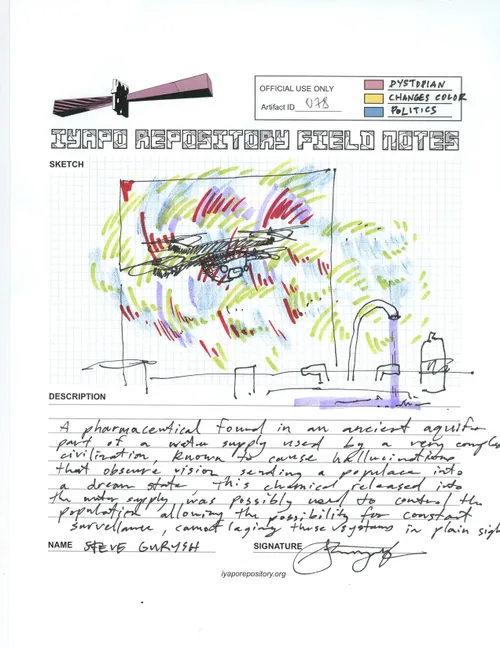 OFFICIAL USE ONLY
Artifact ID 078
DYSTOPIAN
CHANGES COLOR
POLITICS
IYAPO REPOSITORY FIELD NOTES
SKETCH
DESCRIPTION
A pharmaceutical found in an ancient aquifer
part of a water supply used by a very complex
civilization, known to cause hallucinations
that obscure vision sending a populace into
a dream state This chemical released into
the water supply was possibly used to control the
population allowing the possibility for constant
survellance, camoflaging these systems in plain sigh
NAME STEVE GURYSH
SIGNATURE
iyaporepository.org